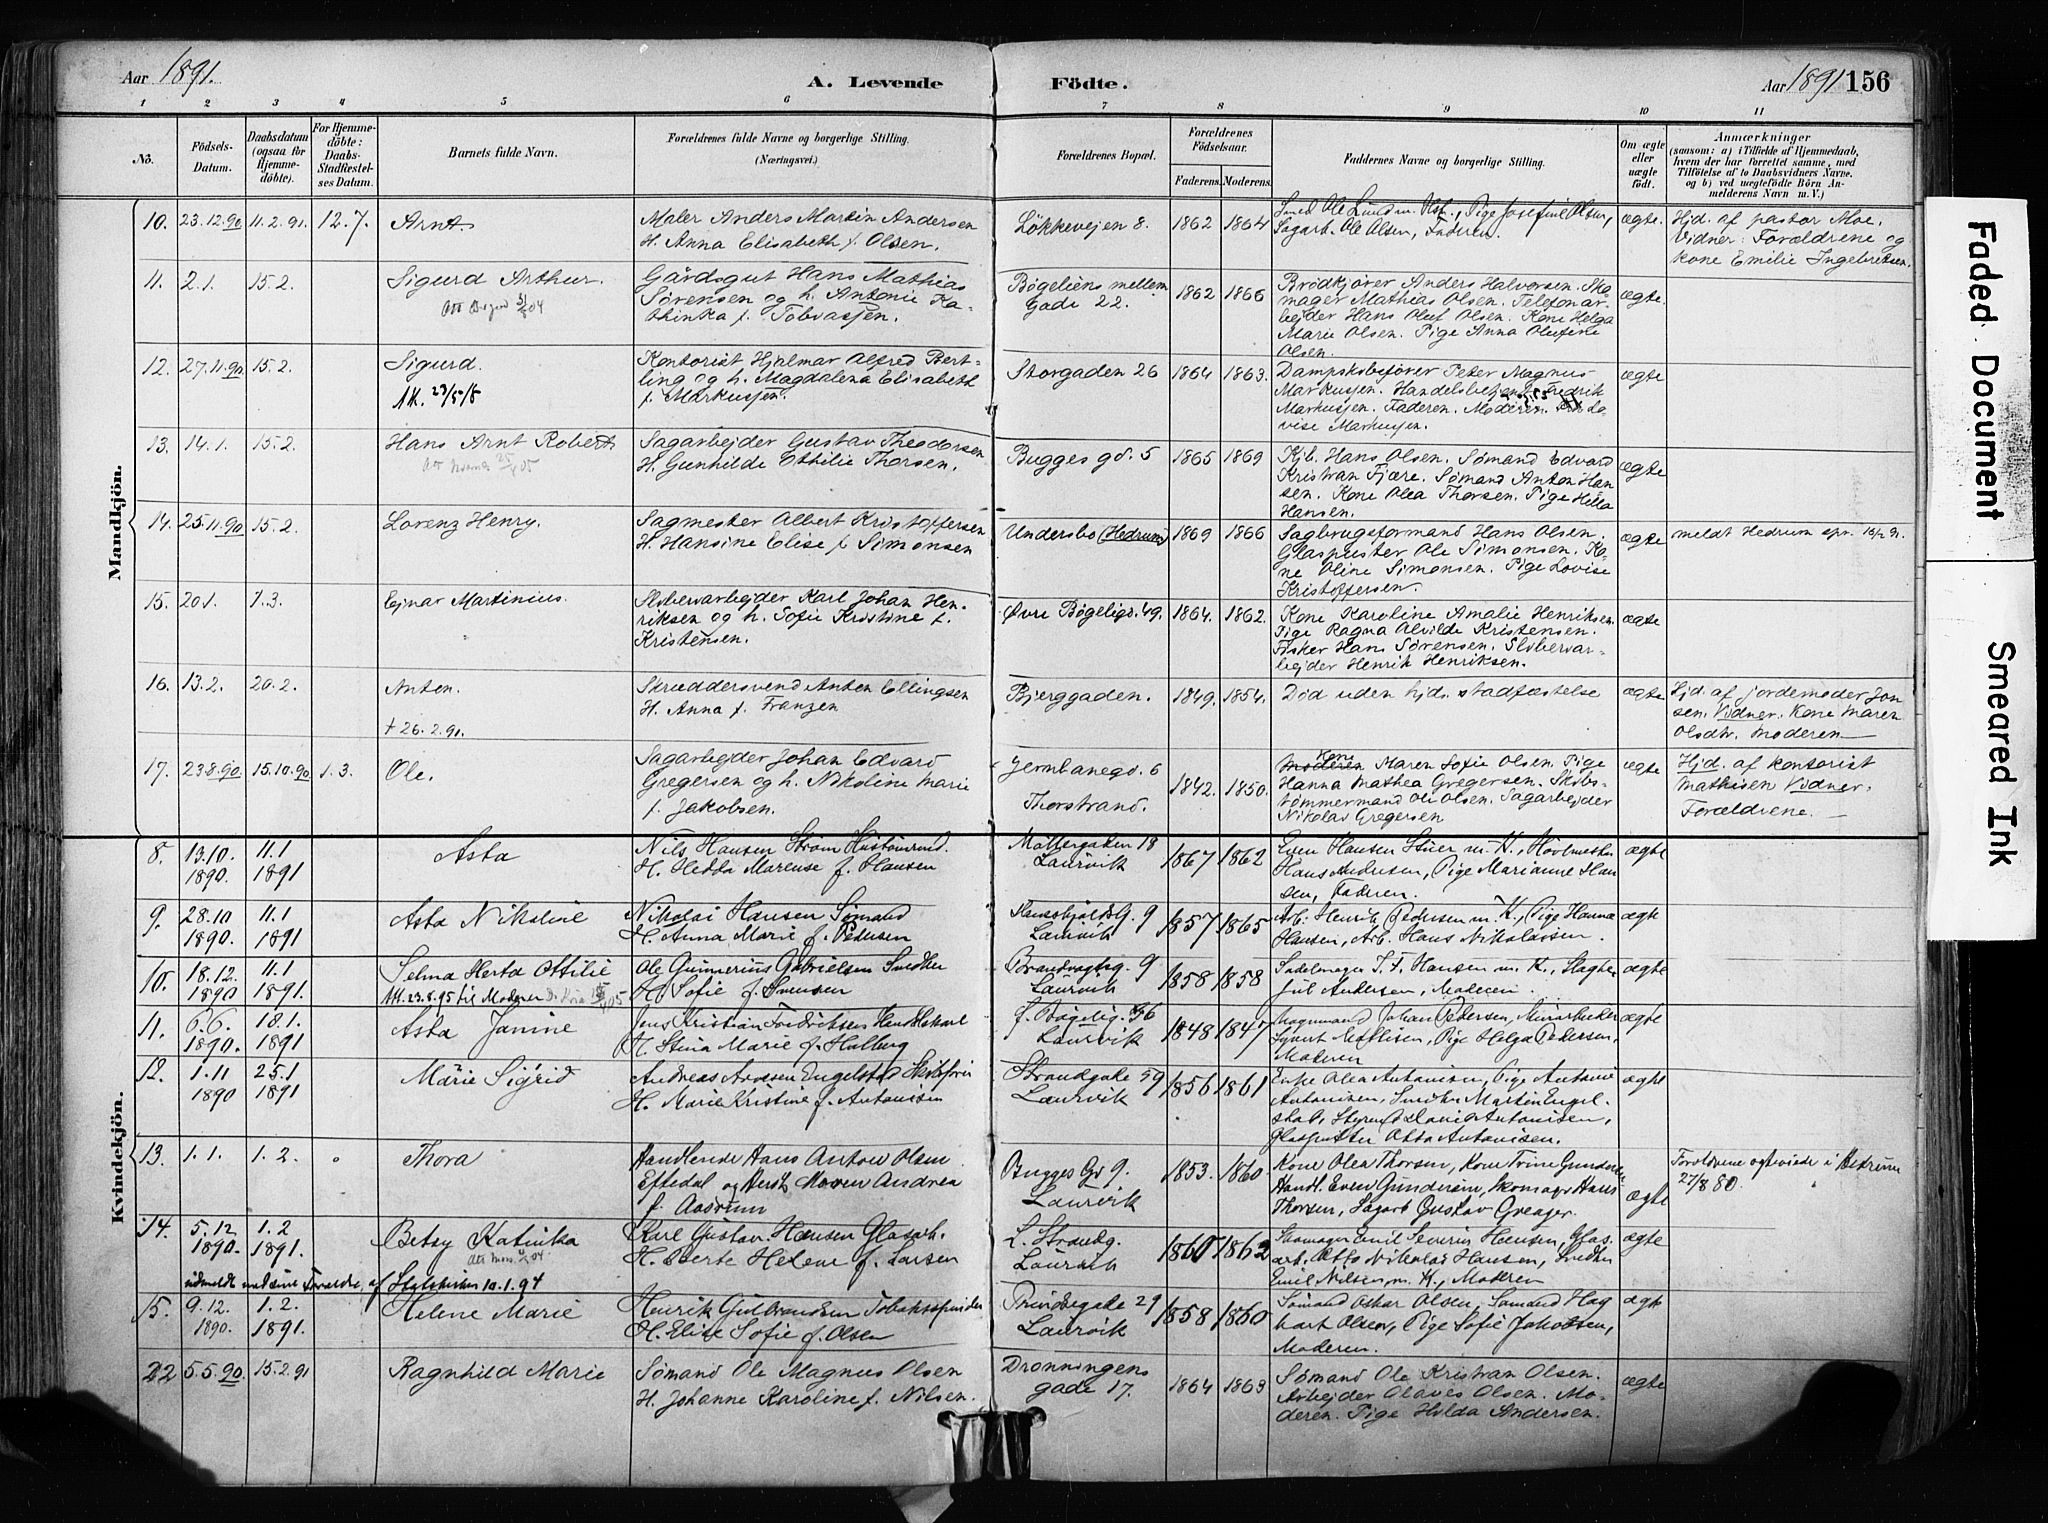 Aar 1891. A. Levende Födte. Aar 1891 156
1 2 3 4 5 6 7 8 9 10 11
No. Födsels-Datum. Daabsdatum (ogsaa for Hjemme-döbte). For Hjemme-döbte: Daabs-Stadfæstel-ses Datum. Barnets fulde Navn. Forældrenes fulde Navne og borgerlige Stilling. (Næringsvei.) Forældrenes Bopæl. Forældrenes Födselsaar. Faderens. Moderens. Faddernes Navne og borgerlige Stilling. Om ægte eller uægte födt. Anmærkninger (saasom: a) i Tilfælde af Hjemmedaab, hvem der har forrettet samme, med Tilföielse af to Daabsvidners Navne. og b) ved uegtefödte Börn An-melderens Navn m. V.)
Mandkjön.
10. 23.12.90 11.2.91. 12.7. Arnt
Maler Anders Martin Andersen
H. Anna Elisabeth f. Olsen.
Løkkevejen 8. 1862 1864
Pige Josefine Olsen,
Sagarb. Ole Olsen, Faderen.
ægte.
Hjd. af pastor Moe.
Vidner: Forældrene og
kone Emilie Ingebriktsen.
11. 2.1. 15.2. Sigurd Arthur.
Gårdsgut Hans Mathias
Sørensen og h. Antonie Ka-
thinka f. Tobiassen.
Bøgeliens mellem
Gade 22. 1862 1866
Brødkjører Anders Halvorsen. Sko
mager Mathias Olsen. Telefonar-
bejder Hans Oluf Olsen. Kone Helga
Marie Olsen. Pige Anna Olufine
Olsen.
ægte.
12. 27.11.90 15.2. Sigurd.
Att. 23/5/8
Kontorist Hjalmar Alfred Bert-
ling og h. Magdalena Elisabeth
f. Markussen.
Storgaden 26 1864 1863.
Dampskibsfører Peter Magnus
Markussen. Handelsbetjent Fredrik
Markussen. Faderen. Moderen. Lo
vise Markussen.
ægte
13. 14.1. 15.2. Hans Arnt Robert
Sagarbejder Gustav Theodorsen
H. Gunhilde Othilie Thorsen.
Bugges gd. 5 1865 1869
Kjb. Hans Olsen. Sømand Edvard
Kristian Fjære. Sømand Anton Han
sen. Kone Olea Thorsen. Pige Hilda
Hansen.
ægte
14. 25.11.90 15.2. Lorenz Henry.
Sagmester Albert Kristoffersen
H. Hansine Elise f. Simonsen
Undersbo (Hedrum) 1869 1866
Sagbrugsformand Hans Olsen.
Glaspuster Ole Simonsen. Ko-
ne Oline Simonsen. Pige Lovise
Kristoffersen.
ægte
meldt Hedrum spr.
15. 20.1. 1.3. Ejnar Martinius.
Slibervarbejder Karl Johan Hen-
riksen og h. Sofie Kristine f.
Kristensen.
Øvre Bøgeligd. 49. 1864. 1862.
Kone Karoline Amalie Henriksen.
Pige Ragna Alvilde Kristensen.
Fisker Hans Sørensen. Slibervar-
bejder Henrik Henriksen.
ægte
16. 13.2. 20.2. Anton.
+ 26.2.91.
Skræddersvend Anton Ellingsen
H. Anna f. Franzen
Bjerggaden. 1849. 1854.
Død uden hjds. stadfæstelse
ægte
Hjd. af jordemoder Jon
sen. Vidner. Kone Maren
Olsdtr. Moderen
17. 23.8.90. 15.10.90 1.3. Ole.
Sagarbejder Johan Edvard
Gregersen og h. Nikoline Marie
f. Jakobsen.
Jernbanegd. 6
Thorstrand. 1842. 1850.
Kone Maren Sofie Olsen. Pige
Hanna Mathea Gregersen. Skibs-
tømmermand Ole Olsen. Sagarbejder
Nikolai Gregersen
ægte
Hjd. af kontorist
Mathisen Vidner.
Forældrene.
Kvindekjön.
8. 13.10. 1890. 11.1 1891 Asta
Nils Hansen Strøm
H. Hedda Marense f. Hansen
Møllergaden 18
Laurvik 1867 1862
Even Hansen Stuer m. K.,
Hans Andersen, Pige Marianne Han
sen, Faderen.
ægte
9. 28.10 1890. 11.1 1891 Asta Nikoline
Nikolai Hansen Sømand
H. Anna Marie f. Pedersen
Laurvik 1857 1865
Arb. Henrik Pedersen m. K., Pige Hanna
Hansen, Arb. Hans Nikolaisen.
ægte
10. 18.12. 1890 11.1 1891. Selma Herta Ottilie
Att. 23.8.95 til Moderen
Ole Gunnerius Gabrielsen Snedker
H. Sofie f. Svensen
Brandvagtsg. 9
Laurvik 1858 1858
Sadelmager J. F. Hansen m. K., Slagter
Jul Andersen, Moderen.
ægte
11. 6.6. 1890. 18.1. 1891 Asta Janine
Jens Kristian Fredriksen Handelskarl
H. Stina Marie f. Halberg
f. Bøgelig. 96
Laurvik 1848 1847
Johan Pedersen, Murarbeider
Syvert Mathisen, Pige Helga Pedersen,
Moderen
ægte
12. 1.11 1890 25.1 1891 Marie Sigrid
Andreas Engelstad Skibsfører
H. Marie Kristine f. Antonisen
Strandgade 59
Laurvik 1856 1861
Enke Olea Antonisen, Pige Antonie
Antonisen, Snedker Martin Engel-
stad, Styrmd David Antonisen,
Glaspuster Otto Antonisen.
ægte
13. 1.1. 1.2. Thora
Handlende Hans Anton Olsen
Eftedal og Hust. Maren Andrea
f. Aasrum
Bugges Gd 9.
Laurvik 1853. 1860
Kone Olea Thorsen, Kone Trine Gundersen
Handl. Even Gundersen, Skomager Hans
Thorsen, Sagarb Gustav Greager.
ægte
Forældrene egteviede i Hedrum
27/8 80.
14. 5.12 1890. 1.2 1891. Betsy Katinka
Karl Gustav Hansen Glasarb.
H. Berte Helene f. Larsen
L. Strandg.
Laurvik 1860 1862
Skomager Emil Severin Hansen, Glas
arb. Otto Nikolai Hansen, Snedker
Emil Nilsen m. K., Moderen
ægte
udmeldt med sine Forældre af Statskirken 10.1.94
15. 9.12. 1890. 1.2. 1891. Helene Marie
Henrik Gulbrandsen Tobaksspinder
H. Elise Sofie f. Olsen
Prindsegade 29
Laurvik 1858 1860
Sømand Oskar Olsen, Sømand Hag
bart Olsen, Pige Sofie Jakobsen,
Moderen.
ægte
22 5.5.90. 15.2.91 Ragnhild Marie
Sømand Ole Magnus Olsen
H. Johanne Karoline f. Nilsen.
Dronningens
gade 17. 1864 1863
Sømand Ole Kristian Olsen.
Arbejder Olaves Olsen. Mo-
deren. Pige Hilda Andersen.
ægte
Faded Document
Smeared Ink